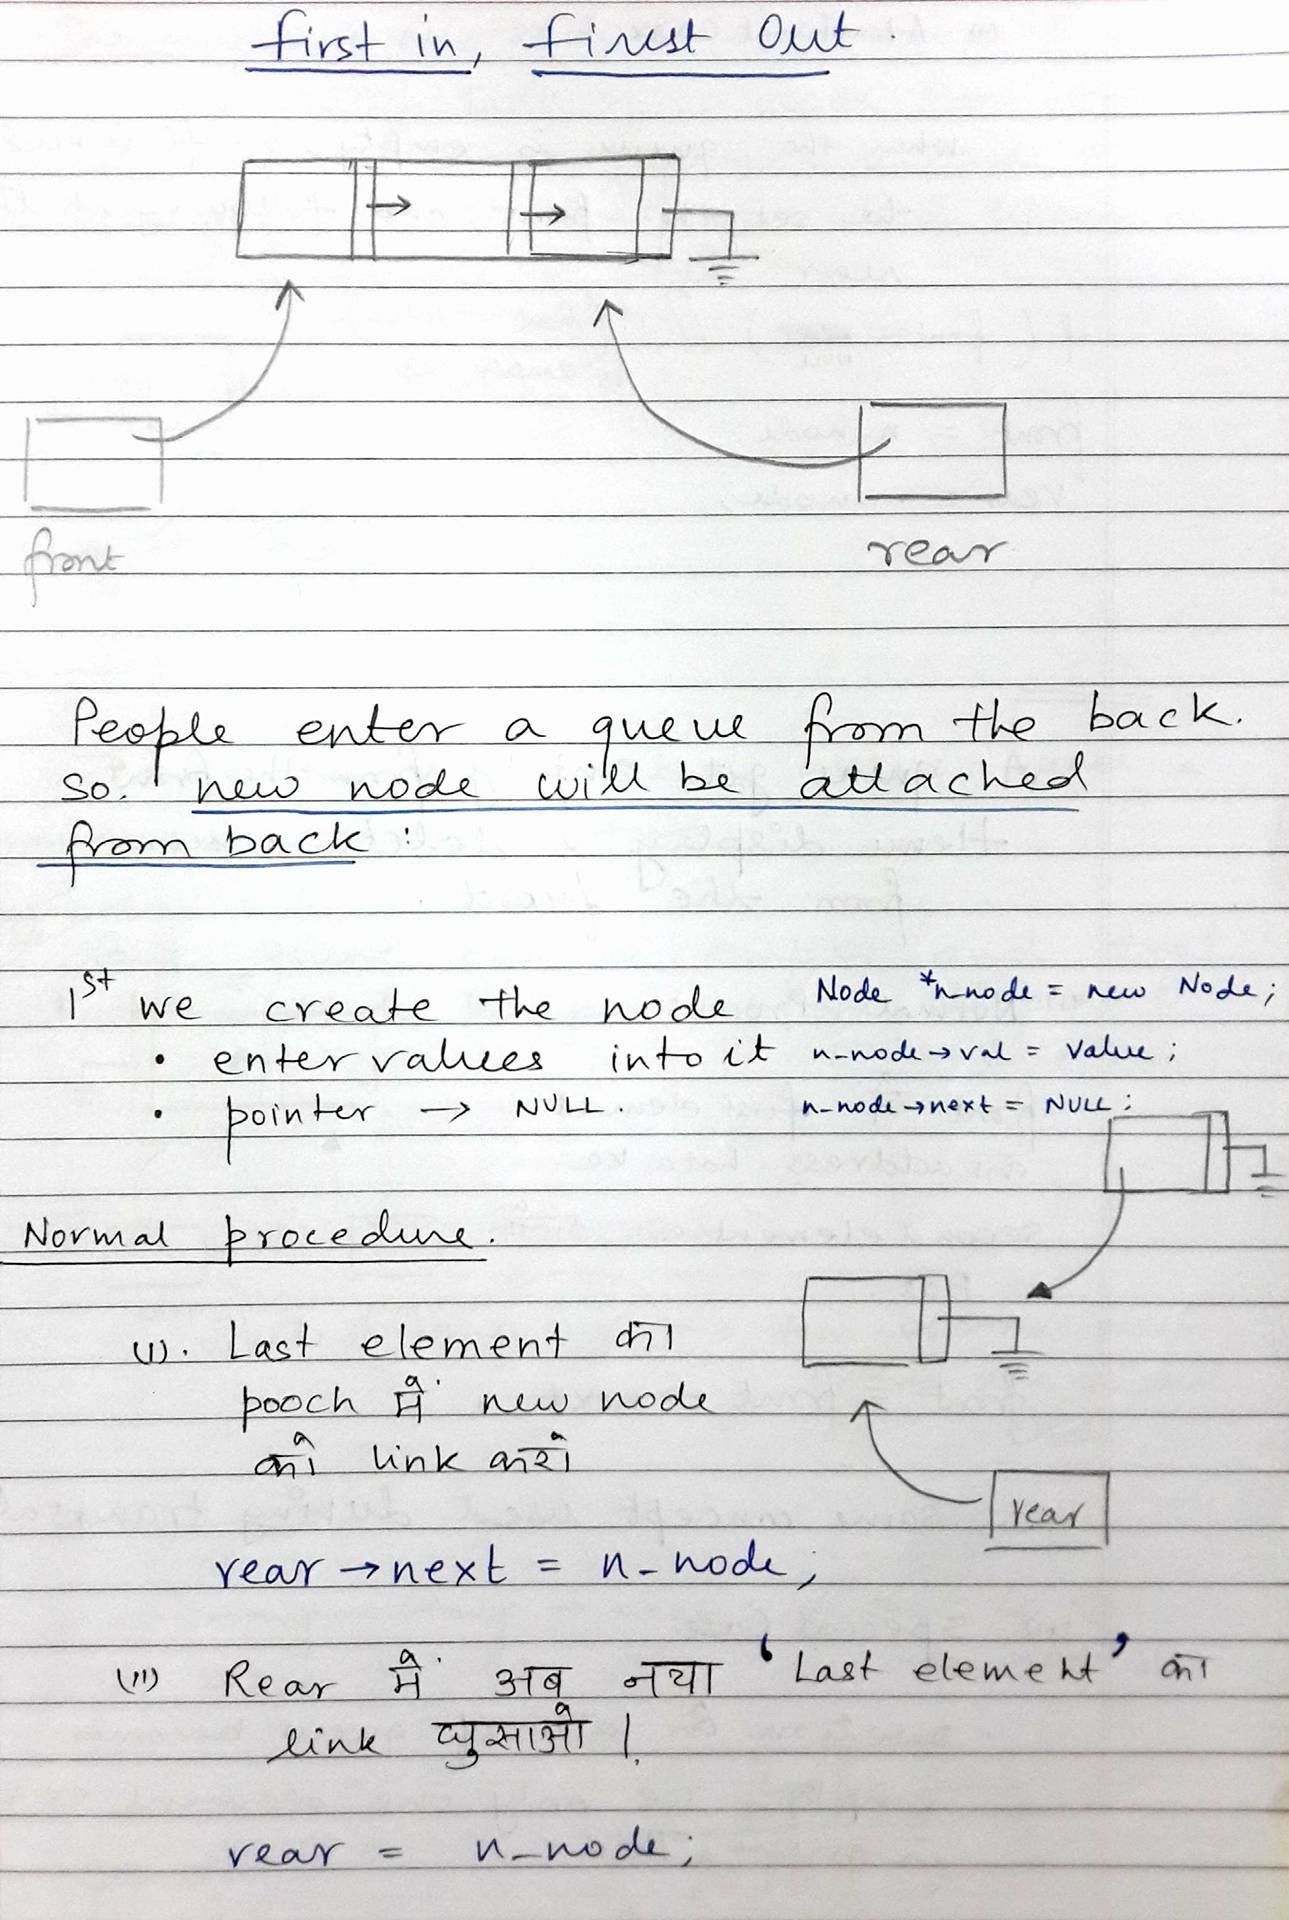 first in, finest Out.
front
rear
People enter a queue from the back.
so. new node will be attached
from back:
1st we create the node Node *n_node = new Node;
• enter values into it n_node→val = value;
• pointer → NULL. n_node→next = NULL;
Normal procedure.
(i). Last element का
pooch में new node
को link करो
rear
rear→next = n_node;
(ii) Rear में अब नया 'Last element' का
link घुसाओ।
rear = n_node;